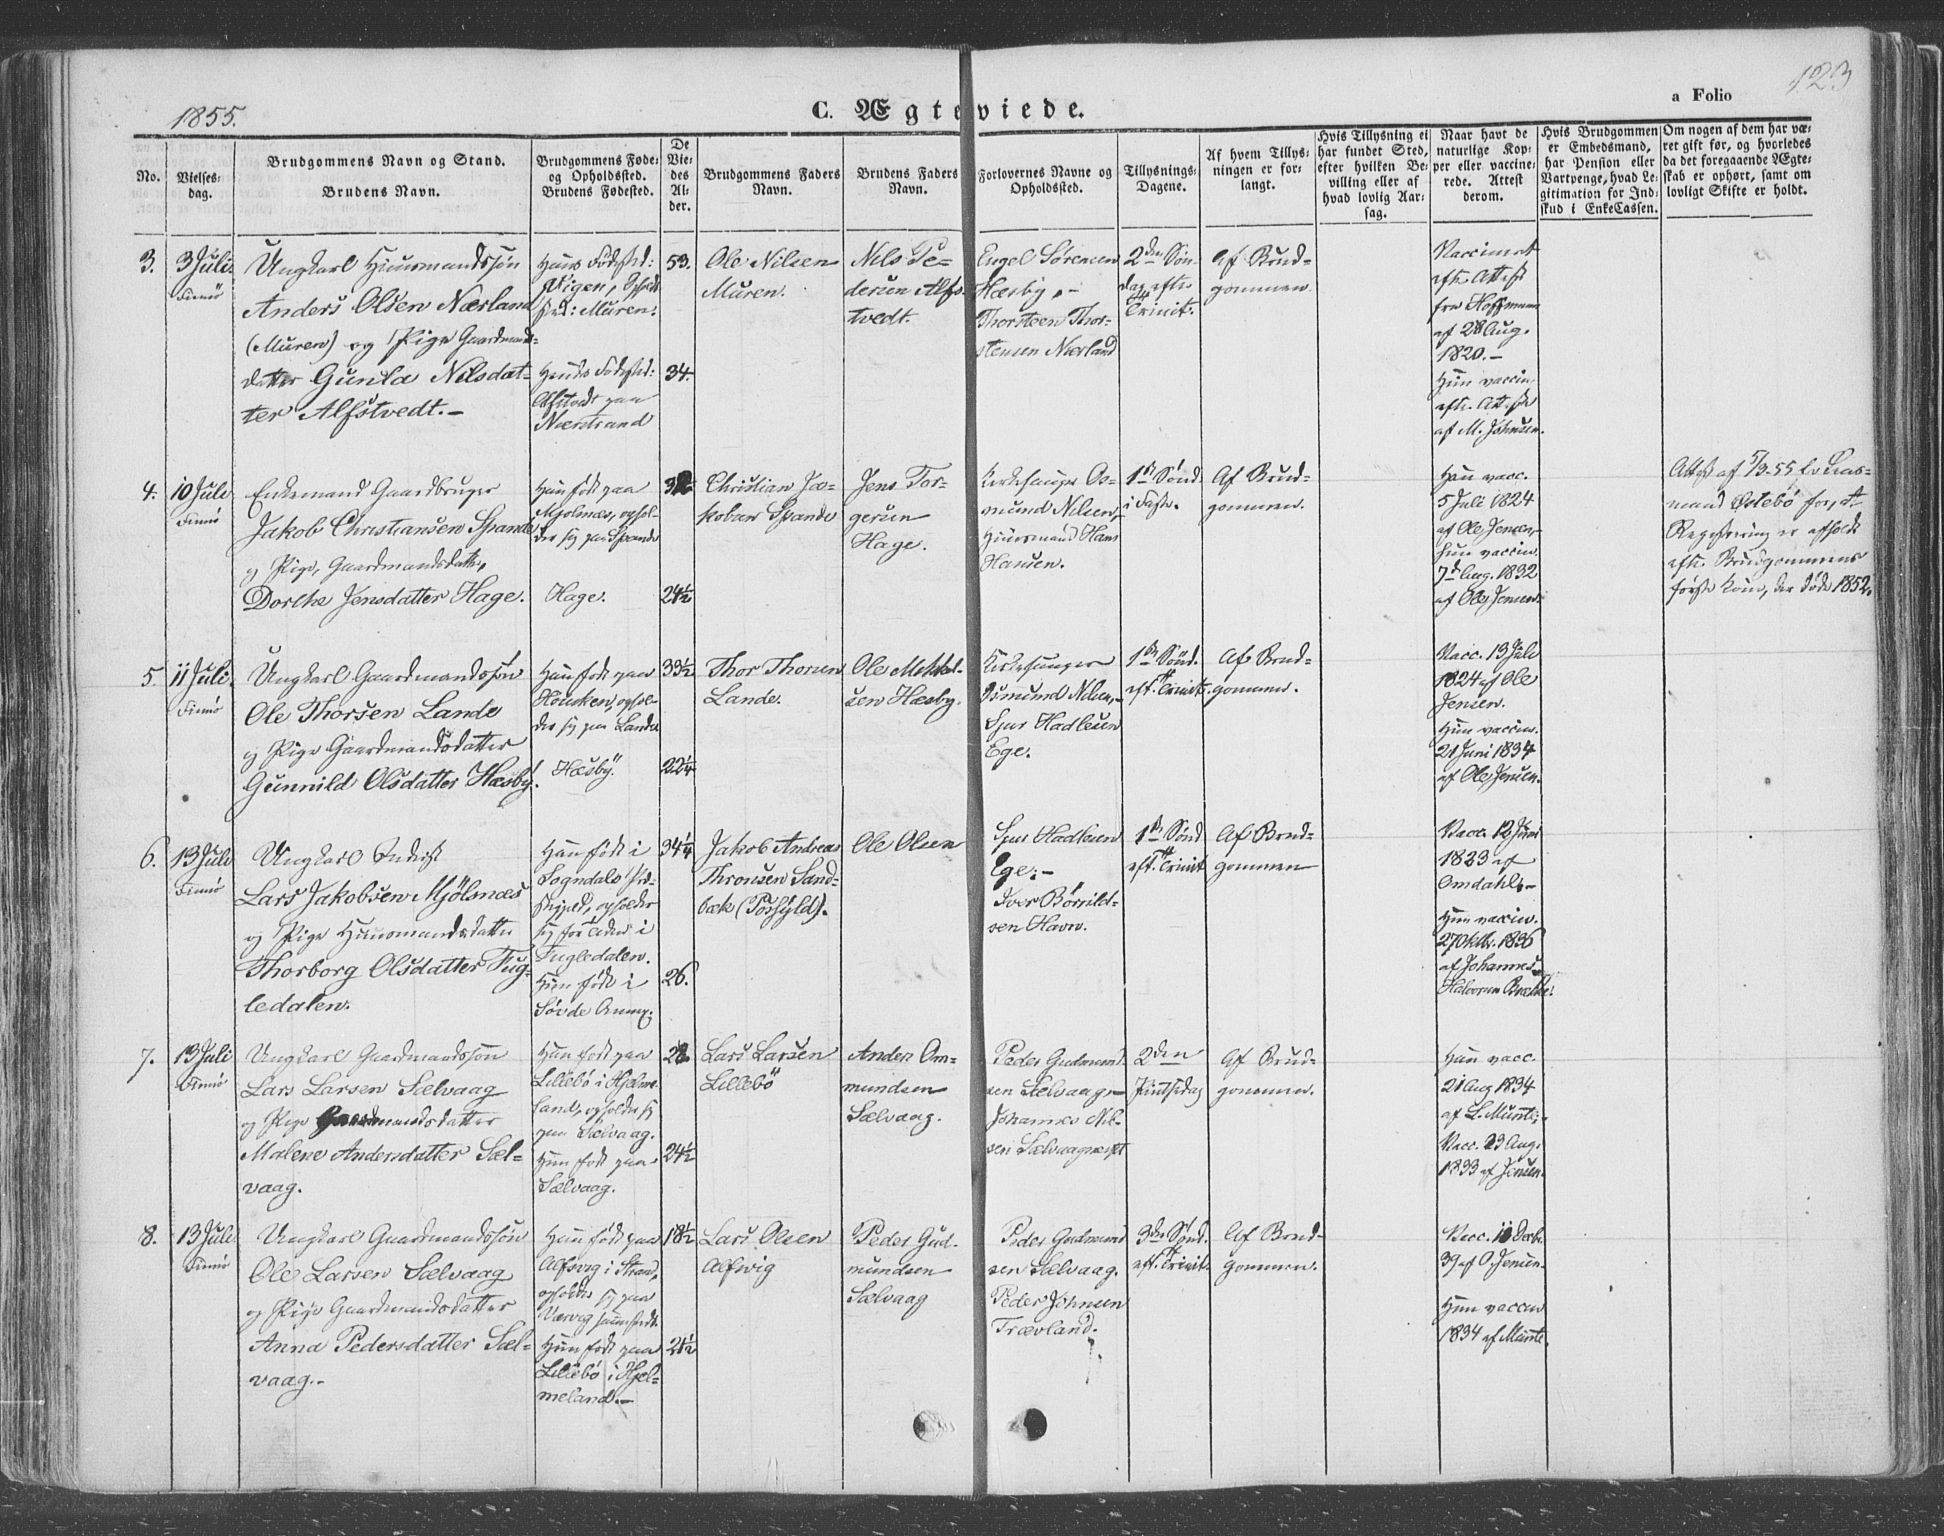 1855.
C. Ægteviede.
a Folio
123
No.
Vielses-
dag.
Brudgommens Navn og Stand.
Brudens Navn.
Brudgommens Føde-
og Opholdssted.
Brudens Fødested.
De
Vie-
des
Al-
der.
Brudgommens Faders
Navn.
Brudens Faders
Navn.
Forlovernes Navne og
Opholdssted.
Tillysnings-
Dagene.
Af hvem Tillys-
ningen er for-
langt.
Hvis Tillysning ei
har fundet Sted,
efter hvilken Be-
villing eller af
hvad lovlig Aar-
sag.
Naar havt de
naturlige Kop-
per eller vaccine-
rede. Attest
derom.
Hvis Brudgommen
er Embedsmand,
har Pension eller
Vartpenge, hvad Le-
gitimation for Ind-
skud i EnkeCassen.
Om nogen af dem har væ-
ret gift før, og hvorledes
da det foregaaende Ægte-
skab er ophørt, samt om
lovligt Skifte er holdt.
3.
3 Juli
Finnö
Ungkarl Huusmandssøn
Anders Olsen Nærland
(Muren) og Pige Gaardmands-
datter Gunla Nilsdat-
ter Alfstvedt.-
Hans Fødested:
Vigen, Opholds
sted: Muren.
Hendes Fødested:
Alfstvedt paa
Nærstrand
53.
34.
Ole Nilsen
Muren.
Nils Pe-
dersen Alfs-
tvedt.
Engel Sørensen
Hæsby,-
Thorsteen Thor-
stensen Nærland
2den Søn-
dag efter
Trinit.
Af Brud-
gommen.
Vaccineret
efter Attest
fra Hoffmann
af 28 Aug.
1820.-
Hun vaccin.
eft. Attest
af M. Johnsen.
4.
10 Juli
Finnö
Enkemand Gaardbruger
Jakob Christiansen Spande
og Pige, Gaardmandsdatter,
Dorthe Jensdatter Hage.
Han født paa
Mjolnæs, ophol-
der sig paa Spande
Hage.
32
24½
Christian Ja-
kobsen Spande
Jens Tor-
gersen
Hage.
Kirkesanger Os-
mund Nilsen,
Huusmand Hans
Hansen.
1ste Sønd.
i Faste.
Af Brud-
gommen.
Han vacc.
5 Juli 1824
af Ole Jensen,
hun vaccin.
7d Aug. 1832
af Ole Jensen.
Attest af 7/3-55 fra Læns-
mand Østebö for, at
Registrering er afholdt
efter Brudgommens
første Kone, der døde 1852.
5.
11 Juli.
Finnö
Ungkarl Gaardmandssøn
Ole Thorsen Lande
og Pige Gaardmandsdatter
Gunnild Olsdatter Hæsby.
Han født paa
Housken, ophol-
der sig paa Lande
Hæsby.
33½
22¼
Thor Thorsen
Lande.
Ole Mikkel-
sen Hæsby.
Kirkesanger
Osmund Nilsen,-
Sjur Hadlesen
Ege.
1ste Sønd.
eft. Trinit.
Af Brud-
gommen.
Vacc. 13 Juli
1824 af Ole
Jensen.
Hun vaccin.
21 Juni 1834
af Ole Jensen.
6.
13 Juli
Finnö
Ungkarl Inderst
Lars Jakobsen Mjölsnæs
og Pige Huusmandsdatter
Thorborg Olsdatter Fug-
ledalen.
Han født i
Sogndals Præ-
stegjæld, opholder
sig for Tiden i
Fugledalen.
Hun født i
Søvde Annex.
34¼
26.
Jakob Andreas
Thronsen Sand-
bæk
Ole Olsen
Sjur Hadlesen
Ege.-
Iver Børrild-
sen Havn.
1ste Sønd.
eft. Trinit.
Af Brud-
gommen
Vacc. 12 Juni
1823 af
Omdahl.-
Hun vaccin.
27 Oktbr. 1836
af Johannes
Halvorsen
7.
13 Juli
Finnö
Ungkarl Gaardmandssøn
Lars Larsen Sælvaag
og Pige Gaardmandsdatter
Malene Andersdatter Sæl-
vaag.
Han født paa
Lillebö i Hjelme-
land, opholder sig
paa Sælvaag.
Hun født paa
Sælvaag.
28.
24½
Lars Larsen
Lillebö
Anders Om-
mundsen
Sælvaag.
Peder Gudmund-
sen Sælvaag,-
Johannes Nil-
sen
2den
Pintsedag
Af Brud-
gommen.
Han vacc.
21 Aug 1834
af L. Munte;
Vacc. 23 Aug.
1833 af Jensen.
8.
13 Juli
Finnö
Ungkarl Gaardmandssøn
Ole Larsen Sælvaag
og Pige Gaardmandsdatter
Anna Pedersdatter Sæl-
vaag.-
Han født paa
Alfsvig i Strand,
opholder sig paa
Hun født paa
Lillebö i Hjel-
meland.-
18½
21½
Lars Olsen
Alfvig
Peder Gud-
mundsen
Sælvaag
Peder Gudmund
sen Sælvaag.
Peder Johnsen
Trævland.
3die Sønd.
eft. Trinit.
Af Brud-
gommen.
Vacc. 11 Decbr.
39 af O. Jensen.
Hun vaccin
1834 af Munte.